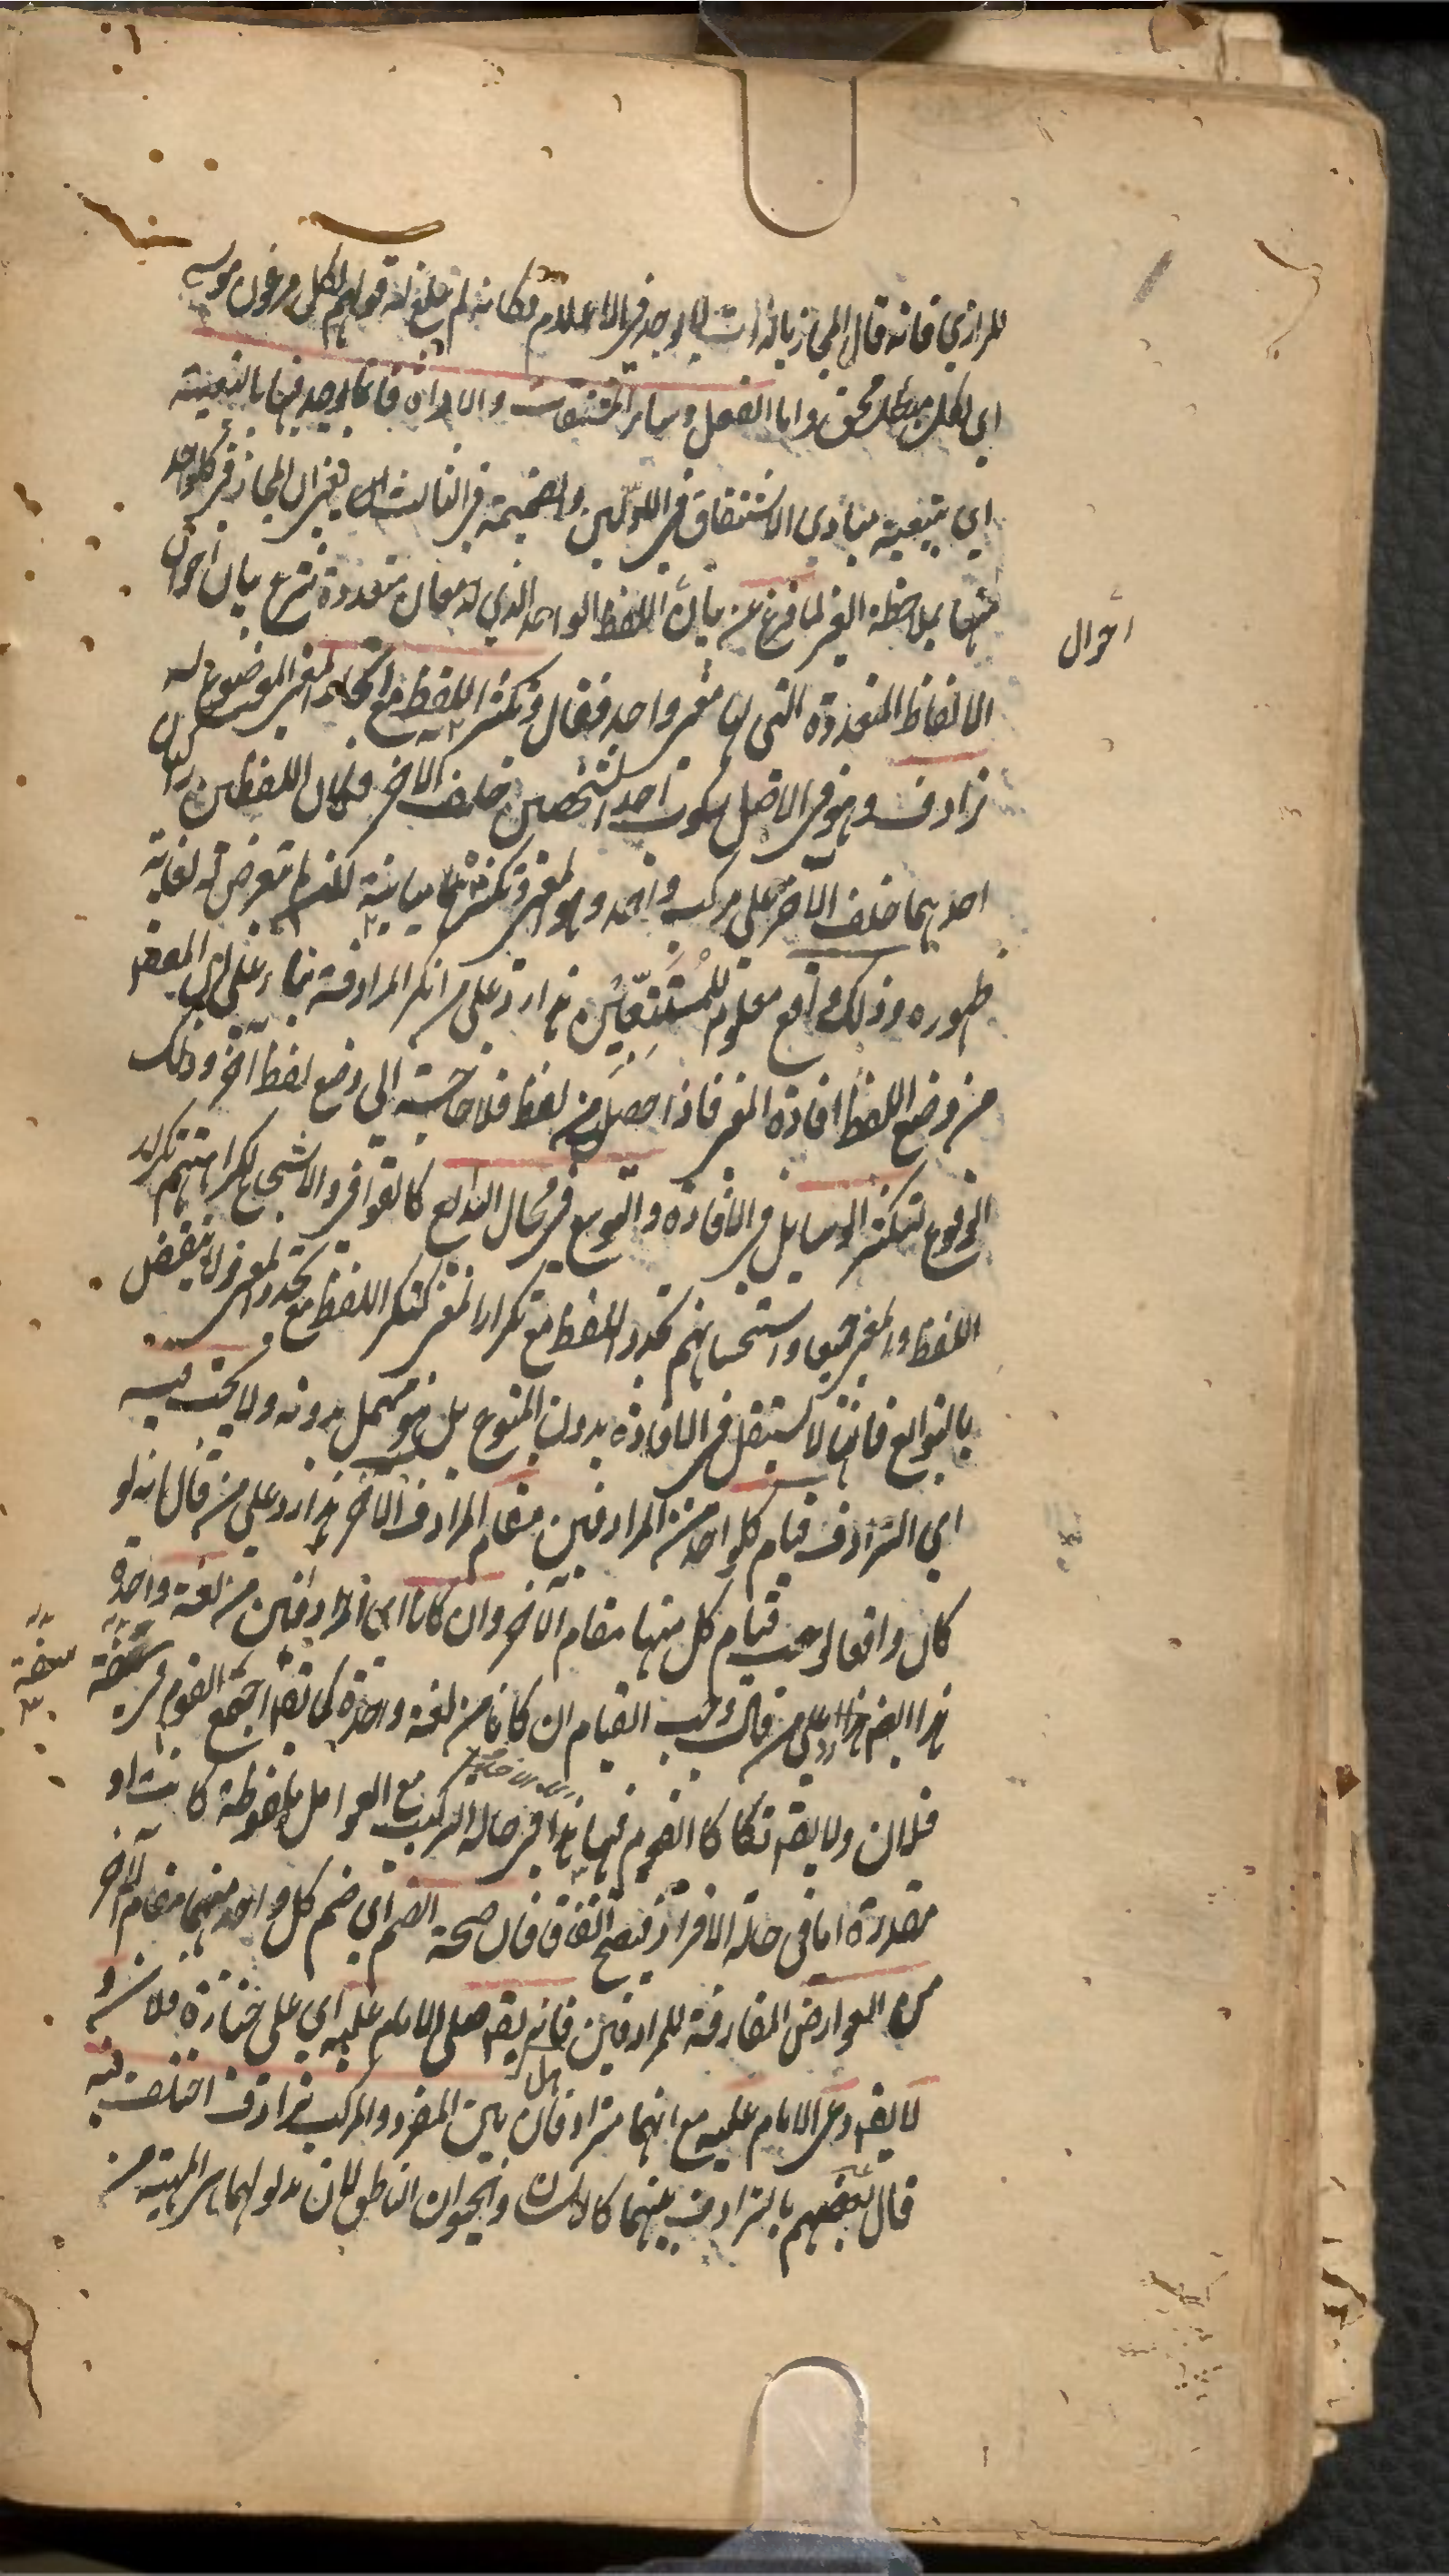 للرازي فانه قال المجاز بالذات لا يوجد في الاعلام فكانه لم يبلغ له قولهم لكل فرعون موسى
اي لكل مبطل محق واما الفعل وساير المشتقات والاداة فانما يوجد فيها بالتبعية
اي بتبعية مبادي الاشتقاق في الاولين والضميمة في الثالث اي يعني ان المجاز في كلواحد
منها بملاحظة الغير لما فرغ عن بيان اللفظ الواحد الذي له معان متعددة شرع بيان احوال
احوال
الالفاظ المتعددة التي لها معنى واحد فقال وتكثر اللفظ مع اتحاد المعنى الموضوع له
ترادف وهو في الاصل ركوب احد الشخصين خلف الآخر فكان اللفظين راكبان
احدهما خلف الآخر على مركب واحد وهو المعنى وتكثرهما مباينة لم يتعرض له لغاية
ظهوره وذلك واقع معلوم للمتتبعين هذا رد على من انكر المرادفة بناء على ان المقصد
من وضع اللفظ افادة المعنى فاذا حصل من لفظ فلا حاجة الى وضع لفظ آخر وذلك
الوقوع لتكثر الوسايل في الافادة والتوسع في محال البدائع كالقوافي والاسجاع لكراهتهم تكرار
اللفظ والمعنى جميعا واستحسانهم تجدد اللفظ مع تكرار المعنى كتكرر اللفظ مع تجدد المعنى ولا ينقض
بالتوابع فانها لا تستقل في الافادة بدون المتبوع بل هو مهمل بدونه ولا يجب فيه
اي الترادف قيام كلواحد من المرادفين مقام المرادف الآخر هذا رد على من قال انه لو
كان واقعا لوجب قيام كل منهما مقام الآخر وان كانا اي المرادفين من لغة واحدة
هذا ايضا رد على من قال وجب القيام ان كانا من لغة واحدة كما يقه اجتمع القوم في سقيفة
سقيفة
فلان ولا يقه تكأكأ القوم فيها هذا في حالة التركيب مع العوامل ملفوظة كانت او
مقدرة اما في حالة الافراد فيصح اتفاقا فان صحة الضم اي ضم كل واحد منهما مقام الآخر
من العوارض المفارقة للمرادفين فانه يقه صلى الامام عليه اي على جنازة فلان و
لا يقه دعى الامام عليه مع انهما مترادفان هل بين المفرد والمركب ترادف اختلف فيه
قال بعضهم بالترادف بينهما كالانسان والحيوان الناطق لان مدلولهما هي المهية من